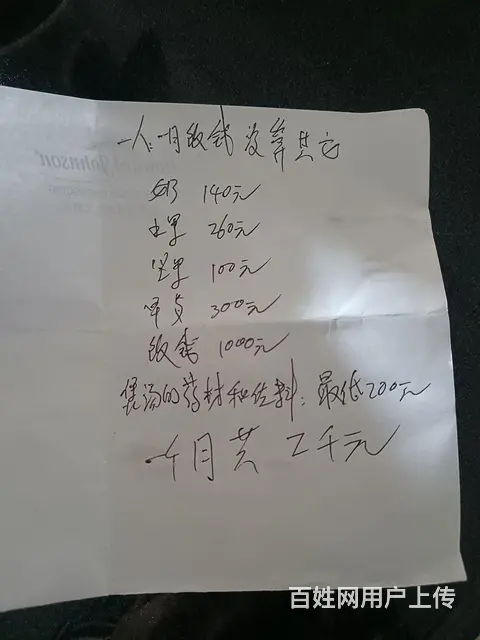 一人一月饭钱没算其它
奶 140元
水果 260元
坚果 100元
早点 300元
饭钱 1000元
煲汤的药材和佐料:最低200元
一个月共2千元
Johnson
百姓网用户上传